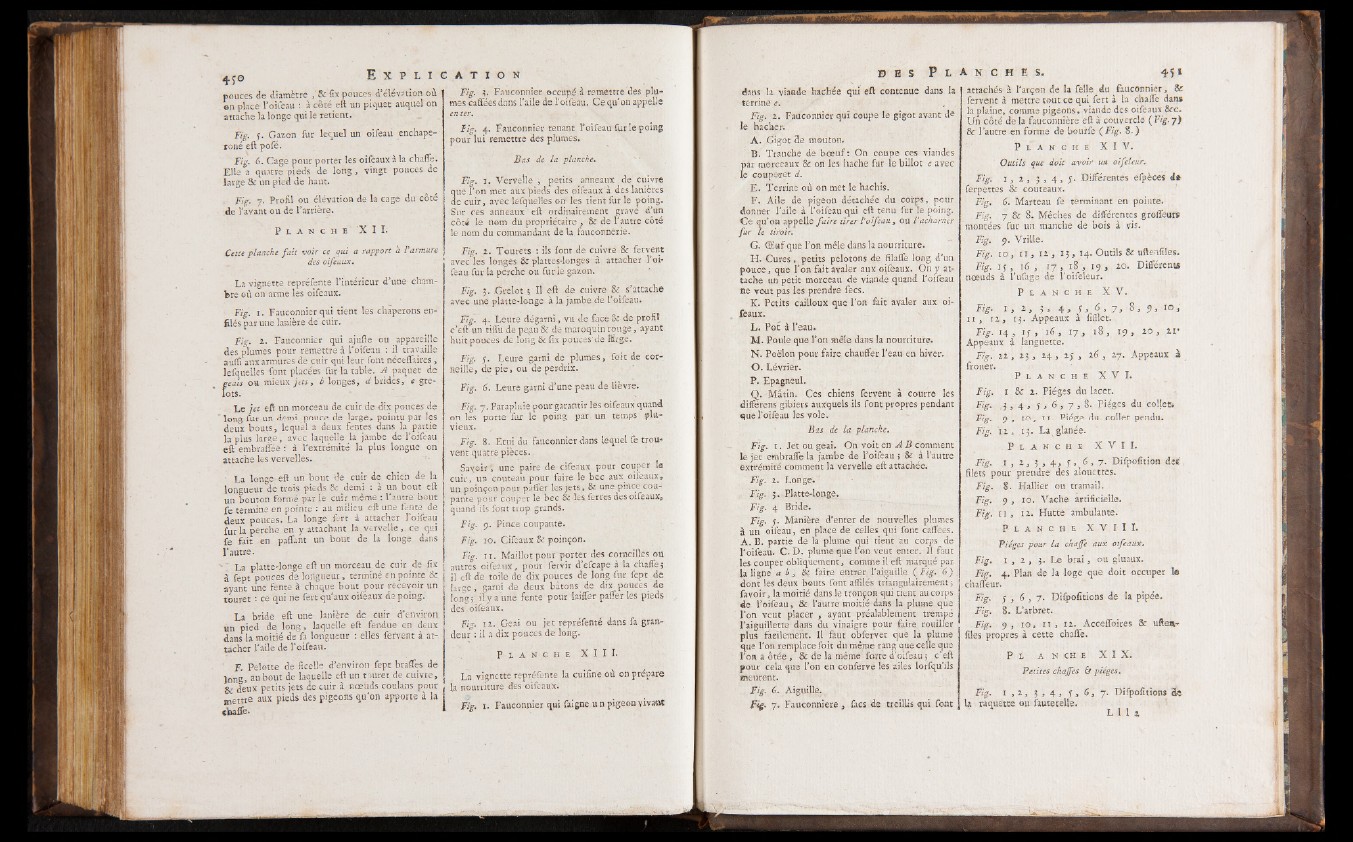 450 EXPLICATION
pouces de diamètre, & ſix pouces d'élévation où
on place l'oiſeau : à côté eſt un piquet auquel on
attache la longe qui le retient.
Fig. 5. Gazon ſur lequel un oiſeau enchape-
roné eſt poſé.
Fig. 6. Cage pour porter les oiſeaux à la chaſſe.
Elle a quatre pieds de long, vingt pouces de
large & un pied de haut.
Fig. 7. Profil ou élévation de la cage du côté
de l'avant ou de l'arrière.
PLANCHE XII.
Cette planche fait voir ce qui a rapport à l'armure
des oiſeaux.
La vignette repréſente l'intérieur d'une cham-
bre où on arme les oiſeaux.
Fig. 1. Fauconnier qui tient les chaperons en-
filés par une lanière de cuir.
Fig. 2. Fauconnier qui ajuſte ou appareille
des plumes pour remettre à l'oiſeau : il travaille
auſſi aux armures de cuir qui leur ſont néceſſaires,
leſquelles ſont placées ſur la table. A paquet de
geais ou mieux jets, b longes, d brides, e gre-
lots.
Le jet eſt un morceau de cuir de dix pouces de
long ſur un demi pouce de large, pointu par les
deux bouts, lequel a deux fentes dans la partie
la plus large, avec laquelle la jambe de l'oiſeau
eſt embraſſée : à l'extrémité la plus longue on
attache les vervelles.
La longe eſt un bout de cuir de chien de la
longueur de trois pieds & demi : à un bout eſt
un bouton formé par le cuir même : l'autre bout
ſe termine en pointe : au milieu eſt une fente de
deux pouces. La longe ſert à attacher l'oiſeau
ſur la perche en y attachant la vervelle, ce qui
ſe fait en paſſant un bout de la longe dans
l'autre.
La platte-longe eſt un morceau de cuir de ſix
à ſept pouces de longueur, terminé en pointe &
ayant une fente à chaque bout pour recevoir un
touret : ce qui ne ſert qu'aux oiſeaux de poing.
La bride eſt une lanière de cuir d'environ
un pied de long, laquelle eſt fendue en deux
dans la moitié de ſa longueur : elles ſervent à at-
tacher l'aîle de l'oiſeau.
F. Pelotte de ficelle d'environ ſept braſſes de
long, au bout de laquelle eſt un touret de cuivre,
& deux petits jets de cuir à nœuds coulans pour
mettre aux pieds des pigeons qu'on apporte à la
chaſſe.
Fig. 3. Fauconnier occupé à remettre des plu-
mes caſſées dans l'aîle de l'oiſeau. Ce qu'on appelle
enter.
Fig. 4. Fauconnier tenant l'oiſeau ſur le poing
pour lui remettre des plumes.
Bas de la planche.
Fig. 1. Vervelle, petits anneaux de cuivre
que l'on met aux pieds des oiſeaux à des lanières
de cuir, avec leſquelles on les tient ſur le poing.
Sur ces anneaux eſt ordinairement gravé d'un
côté le nom du propriétaire, & de l'autre côté
le nom du commandant de la fauconnerie.
Fig. 2. Tourets : ils ſont de cuivre & ſervent
avec les longes & plattes-longes à attacher l'oi-
ſeau ſur la perche ou ſur le gazon.
Fig. 3. Grelot ; Il eſt de cuivre & s'attache
avec une platte-longe à la jambe de l'oiſeau.
Fig. 4. Leure dégarni, vu de face & de profil
c'eſt un tiſſu de peau & de maroquin rouge, ayant
huit pouces de long & ſix pouces de large.
Fig. 5. Leure garni de plumes, ſoit de cor-
neille, de pie, ou de perdrix.
Fig. 6. Leure garni d'une peau de lièvre.
Fig. 7. Parapluie pour garantir les oiſeaux quand
on les porte ſur le poing par un temps plu-
vieux.
Fig. 8. Etui du fauconnier dans lequel ſe trou-
vent quatre pièces.
Savoir ; une paire de ciſeaux pour couper le
cuir, un couteau pour faire le bec aux oiſeaux,
un poinçon pour paſſer les jets, & une pince cou-
pante pour couper le bec & les ſerres des oiſeaux,
quand ils ſont trop grands.
Fig. 9. Pince coupante.
Fig. 10. Ciſeaux & poinçon.
Fig. 11. Maillot pour porter des corneilles ou
autres oiſeaux, pour ſervir d'eſcape à la chaſſe ;
il eſt de toile de dix pouces de long ſur ſept de
large, garni de deux bâtons de dix pouces de
long ; il y a une fente pour laiſſer paſſer les pieds
des oiſeaux.
Fig. 12. Geai ou jet repréſenté dans ſa gran-
deur : il a dix pouces de long.
PLANCHE XIII.
La vignette repréſente la cuiſine où on prépare
la nourriture des oiſeaux.
Fig. 1. Fauconnier qui ſaigne un pigeon vivant
DES PLANCHES. 451
dans la viande hachée qui eſt contenue dans la
terrine e.
Fig. 2. Fauconnier qui coupe le gigot avant de
le hacher.
A. Gigot de mouton.
B. Tranche de bœuf : On coupe ces viandes
par morceaux & on les hache ſur le billot c avec
le couperet d.
E. Terrine où on met le hachis.
F. Aîle de pigeon détachée du corps, pour
donner l'aîle à l'oiſeau qui eſt tenu ſur le poing.
Ce qu'on appelle faire tirer l'oiſeau, ou l'acharner
ſur le tiroir.
G. Œuf que l'on mêle dans la nourriture.
H. Cures, petits pelotons de filaſſe long d'un
pouce, que l'on fait avaler aux oiſeaux. On y at-
tache un petit morceau de viande quand l'oiſeau
ne veut pas les prendre ſecs.
K. Petits cailloux que l'on fait avaler aux oi-
ſeaux.
L. Pot à l'eau.
M. Poule que l'on mêle dans la nourriture.
N. Poëlon pour faire chauffer l'eau en hiver.
O. Lévrier.
P. Epagneul.
Q. Mâtin. Ces chiens ſervent à courre les
différens gibiers auxquels ils ſont propres pendant
que l'oiſeau les vole.
Bas de la planche.
Fig. 1. Jet ou geai. On voit en A B comment
le jet embraſſe la jambe de l'oiſeau ; & à l'autre
extrémité comment la vervelle eſt attachée.
Fig. 2. Longe.
Fig. 3. Platte-longe.
Fig. 4 Bride.
Fig. 5. Manière d'enter de nouvelles plumes
à un oiſeau, en place de celles qui ſont caſſées.
A. B. partie de la plume qui tient au corps de
l'oiſeau. C. D. plume que l'on veut enter. Il faut
les couper obliquement, comme il eſt marqué par
la ligne a b, & faire entrer l'aiguille (Fig. 6)
dont les deux bouts ſont affilés triangulairement ;
ſavoir, la moitié dans le tronçon qui tient au corps
de l'oiſeau, & l'autre moitié dans la plume que
l'on veut placer, ayant préalablement trempé
l'aiguillette dans du vinaigre pour faire rouiller
plus facilement. Il faut obſerver que la plume
que l'on remplace ſoit du même rang que celle que
l'on a ôtée, & de la même ſorte d'oiſeau ; c'eſt
pour cela que l'on en conſerve les aîles lorſqu'ils
meurent.
Fig. 6. Aiguille.
Fig. 7. Fauconnière, ſacs de treillis qui ſont
attachés à l'arçon de la ſelle du fauconnier, &
ſervent à mettre tout ce qui ſert à la chaſſe dans
la plaine, comme pigeons, viande des oiſeaux &c.
Un côté de la fauconnière eſt à couvercle (Fig. 7)
& l'autre en forme de bourſe (Fig. 8.)
PLANCHE XIV.
Outils que doit avoir un oiſeleur.
Fig. 1, 2, 3, 4, 5. Différentes eſpèces de
ſerpettes & couteaux.
Fig. 6. Marteau ſe terminant en pointe.
Fig. 7 & 8. Mêches de différentes groſſeurs
montées ſur un manche de bois à vis.
Fig. 9. Vrille.
Fig. 10, 11, 12, 13, 14. Outils & uſtenſiles.
Fig. 15, 16, 17, 18, 19, 20. Différents
nœuds à l'uſage de l'oiſeleur.
PLANCHE XV.
Fig. 1, 2, 3, 4, 5, 6, 7, 8, 9, 10,
11, 12, 13. Appeaux à ſifflet.
Fig. 14, 15, 16, 17, 18, 19, 20, 21.
Appeaux à languette.
Fig. 22, 23, 24, 25, 26, 27. Appeaux à
froner.
PLANCHE XVI.
Fig. 1 & 2. Piéges du lacet.
Fig. 3, 4, 5, 6, 7, 8. Piéges du collet.
Fig. 9, 10, 11 Piége du collet pendu.
Fig. 12, 13. La glanée.
PLANCHE XVII.
Fig. 1, 2, 3, 4, 5, 6, 7. Diſpoſition des
filets pour prendre des alouettes.
Fig. 8. Hallier ou tramail.
Fig. 9, 10. Vache artificielle.
Fig. 11, 12. Hutte ambulante.
PLANCHE XVIII.
Piéges pour la chaſſe aux oiſeaux.
Fig. 1, 2, 3. Le brai, ou gluaux.
Fig. 4. Plan de la loge que doit occuper le
chaſſeur.
Fig. 5, 6, 7. Diſpoſitions de la pipée.
Fig. 8. L'arbret.
Fig. 9, 10, 11, 12. Acceſſoires & uſten-
ſiles propres à cette chaſſe.
PLANCHE XIX.
Petites chaſſes & piéges.
Fig. 1, 2, 3, 4, 5, 6, 7. Diſpoſitions de
la raquette ou ſauterelle.
Lll 2